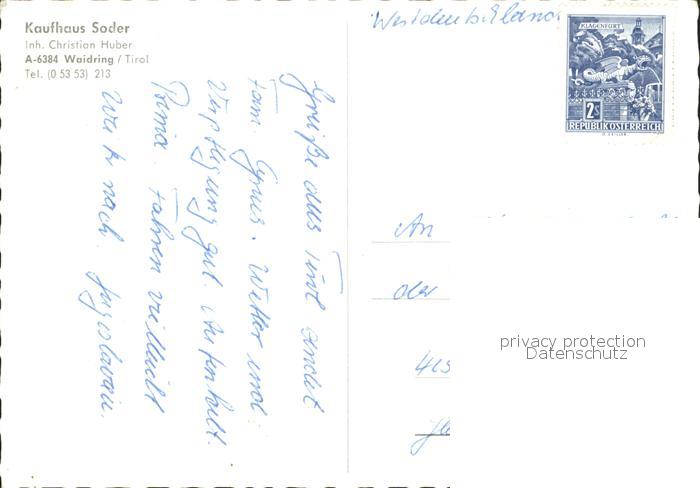 Kaufhaus Soder
Inh. Christian Huber
A-6384 Waidring / Tirol
Tel. (0 53 53) 213
Westdeutschland
KLAGENFURT
2s
REPUBLIK ÖSTERREICH
Grüße aus Tirol sendet
Fam. Wetter und
Verpflegung gut. Aufenthalt
Prima. Fahren vielleicht
Weiter nach Jugoslavien.
An
der
privacy protection
Datenschutz